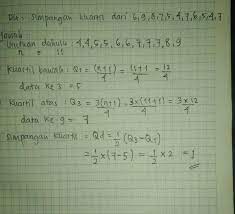 Dit: Simpangan kuartil dari 6,9,8,7,5,4,7,6,5,4,7
Jawab
Urutkan dahulu: 4,4,5,5,6,6,7,7,7,8,9
n = 11
Kuartil bawah: Q1 = (n+1)/4 = 11+1/4 = 12/4
data ke 3 = 5
Kuartil atas: Q3 = 3(n+1)/4 = 3x(11+1)/4 = 3x12/4
data ke 9 = 7
Simpangan kuartil = Qd = 1/2 (Q3-Q1)
= 1/2 x (7-5) = 1/2 x 2 = 1